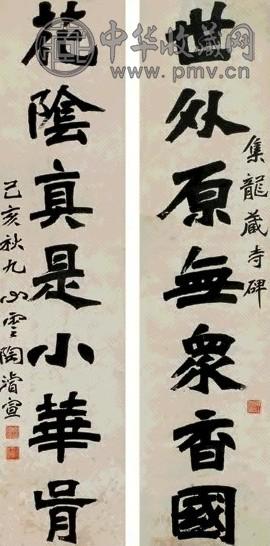 中华收藏网
www.pmv.cn
世外原無衆香國
集龍藏寺碑
花陰真是小華胥
己亥秋九心雲陶濬宣